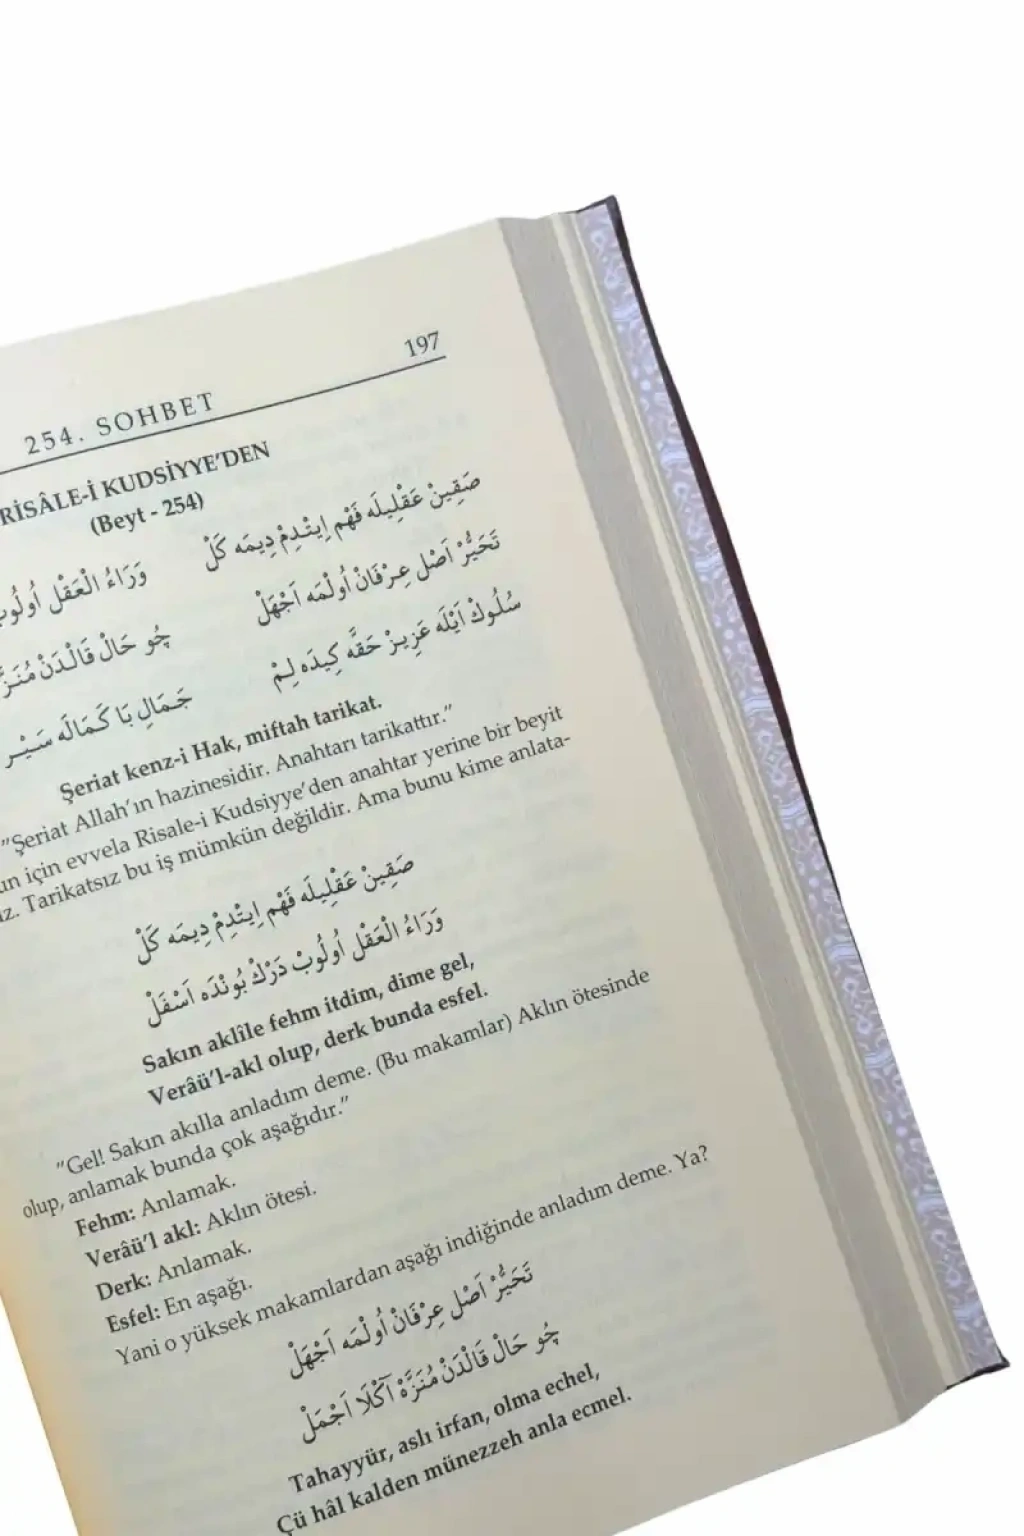 197
254. SOHBET
RİSÂLE-İ KUDSİYYE’DEN
(Beyt - 254)
صَقِينْ عَقْلِيلَه فَهْم اِيتْدِمْ دِيمَه كَلْ وَرَاءُ الْعَقْل اُولُوبْ
تَحَيُّرْ اَصْل عِرْفَانْ اُولْمَه اَجْهَلْ چُو حَالْ قَالْدَنْ
سُلُوكْ اَيْلَه عَزِيزْ حَقَّه كِيدَه لِمْ جَمَالِ بَا كَمَالَه سَيْر
Şeriat kenz-i Hak, miftah tarikat.
"Şeriat Allah’ın hazinesidir. Anahtarı tarikattır."
için evvela Risale-i Kudsiyye’den anahtar yerine bir beyit
Tarikatsız bu iş mümkün değildir. Ama bunu kime anlata-
صَقِينْ عَقْلِيلَه فَهْم اِيتْدِمْ دِيمَه كَلْ
وَرَاءُ الْعَقْل اُولُوبْ دَرْكْ بُونْدَه اَسْفَلْ
Sakın aklîle fehm itdim, dime gel,
Verâü’l-akl olup, derk bunda esfel.
"Gel! Sakın akılla anladım deme. (Bu makamlar) Aklın ötesinde
olup, anlamak bunda çok aşağıdır."
Fehm: Anlamak.
Verâü’l akl: Aklın ötesi.
Derk: Anlamak.
Esfel: En aşağı.
Yani o yüksek makamlardan aşağı indiğinde anladım deme. Ya?
تَحَيُّرْ اَصْل عِرْفَانْ اُولْمَه اَجْهَلْ
چُو حَالْ قَالْدَنْ مُنَزَّهْ آكْلَا اَجْمَلْ
Tahayyür, aslı irfan, olma echel,
Çü hâl kalden münezzeh anla ecmel.